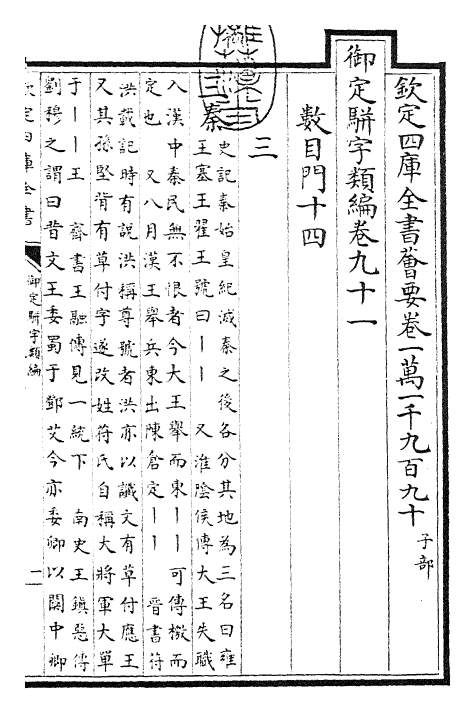 欽定四庫全書薈要卷一萬一千九百九十 子部
御定駢字類編卷九十一
數目門十四
三
秦
史記秦始皇紀滅秦之後各分其地為三名曰雍
王塞王翟王號曰丨丨 又淮陰侯傳大王失職
入漢中秦民無不恨者今大王舉而東丨丨可傳檄而
定也 又八月漢王舉兵東出陳倉定丨丨 晉書符
洪載記時有說洪稱尊號者洪亦以讖文有草付應王
又其孫堅背有草付字遂改姓符氏自稱大將軍大單
于丨丨王 齊書王融傳見一統下 南史王鎮惡傳
劉穆之謂曰昔文王委蜀于鄧艾今亦委卿以關中卿
欽定四庫全書
御定駢字類編
一